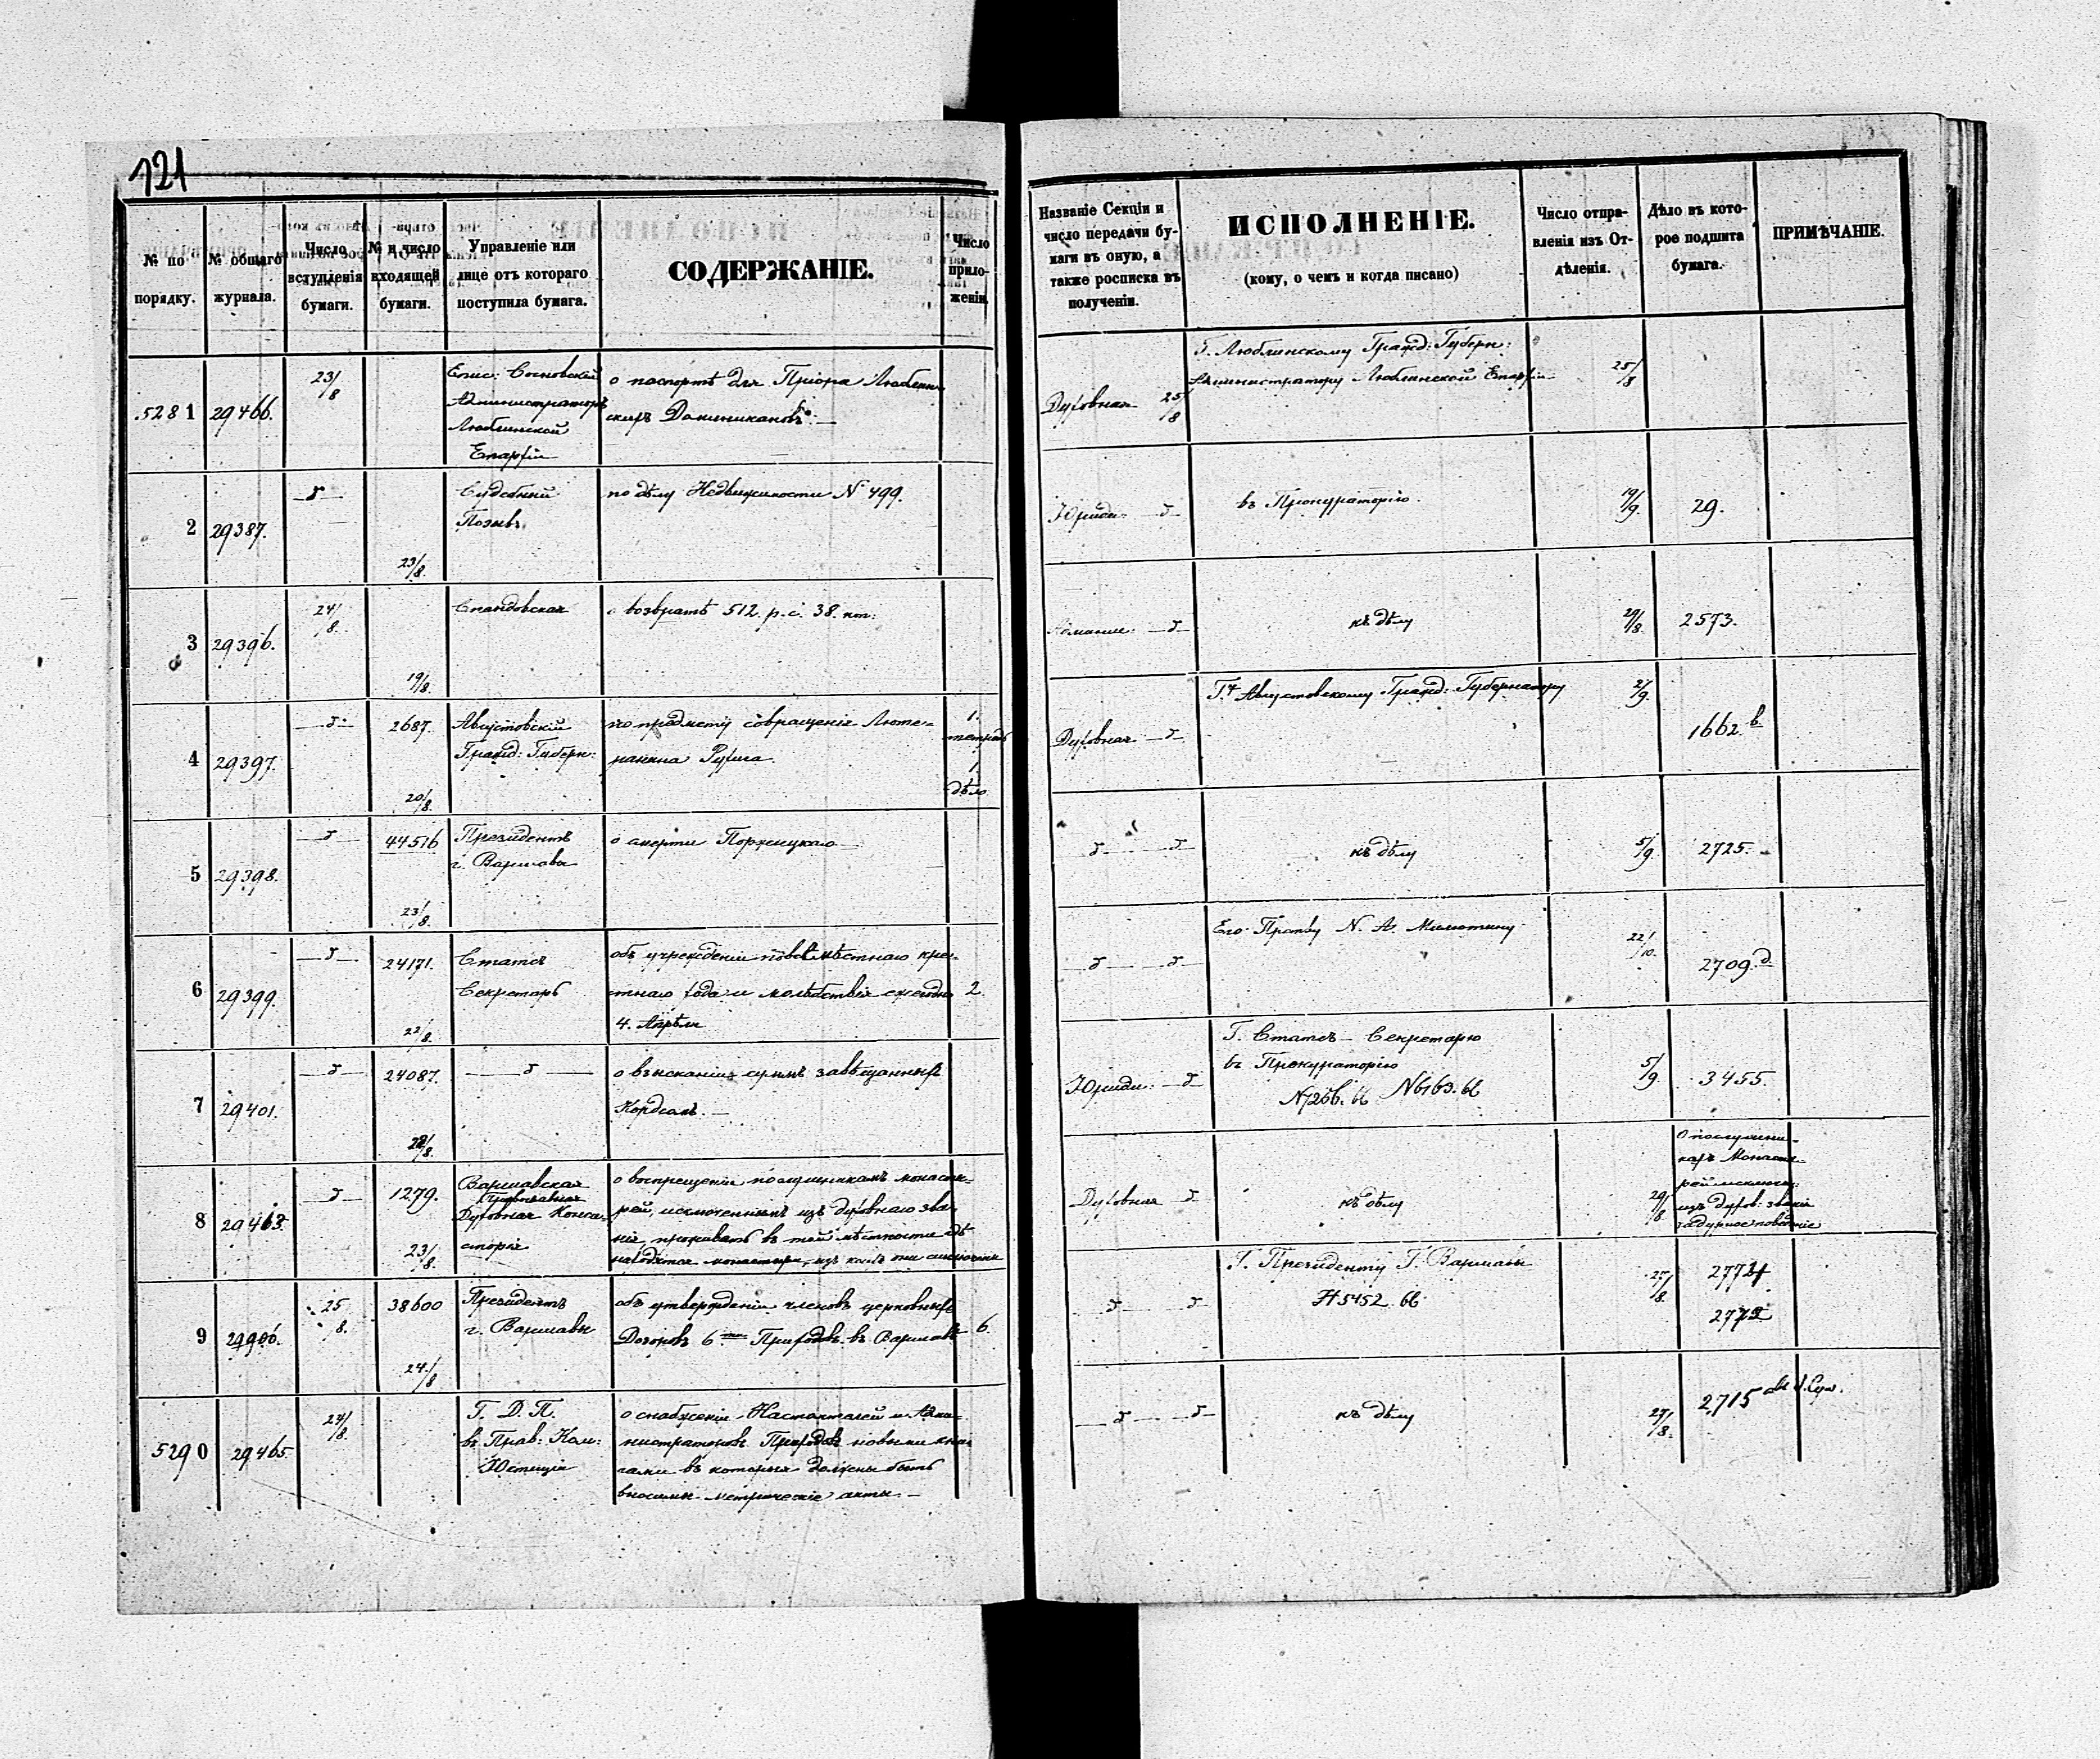 121
№ по порядку.
№ общаго журнала.
Число вступленія бумаги.
№ и число входящей бумаги.
Управленіе или лице отъ котораго поступила бумага.
СОДЕРЖАНІЕ.
Число приложеній
Названіе Секціи и число передачи бумаги въ оную, а также росписка въ полученіи.
ИСПОЛНЕНІЕ.
(кому, о чемъ и когда писано)
Число отправленія изъ Отдѣленія.
Дѣло въ которое подшита бумага.
ПРИМѢЧАНІЕ.
5281 29466. 23/8
Епис: Сосновскій
Администраторъ
Люблинской
Епархіи
о паспортѣ для Пріора Люблин-
скихъ Доминикановъ.
Духовная 25/8
Г. Люблинскому Гражд: Губерн:
Администратору Люблинской Епархіи
25/8
2 29387. 23/8.
Судебный
Позывъ
по дѣлу Недвижимости N 499.
Юриди-
въ Прокураторію.
19/9. 29.
3 29396. 24/8. 19/8.
о возвратѣ 512. р. с. 38. коп:
къ дѣлу
29/8. 2573.
4 29397. 2687. 20/8.
Августовскій
Гражд: Губерн:
по предмету совращенія Люте-
ранина
1.
тетрадь
1
дѣло
Духовная
Августовскому Гражд: Губернатору
2/9. 1662.в
5 29398. 44516 23/8.
Президентъ
г. Варшавы
о смерти
къ дѣлу
5/9. 2725.
6 29399. 24171. 22/8.
Статсъ
Секретарь
объ учрежденіи повсемѣстнаго кре-
стнаго хода и молебствія ежегодно
4. Апрѣля
2.
Его Прев-ву N. А. Милютину
22/10. 2709.д
7 29401. 24087. 22/8.
о взысканіи суммъ завѣщанныхъ
Юриди:
Г. Статсъ-Секретарю
въ Прокураторію
N7266. 66 N6163. 66
5/9. 3455.
8 29463. 1279. 23/8.
Варшавская
Духовная Конси-
сторія
о воспрещеніи послушникамъ монасты-
рей, исключеннымъ изъ духовнаго зва-
нія, проживать въ той мѣстности гдѣ
находятся монастыри, изъ коихъ они исключены
Духовная
къ дѣлу
29/8.
О послушни-
кахъ Монасты-
рей исключ:
изъ духов: званія
за дурное поведеніе
9 29906. 25/8. 38600 24/8
Президентъ
г. Варшавы
объ утвержденіи членовъ церковныхъ
Дозоровъ 6ти Приходовъ въ Варшавѣ
6.
Г. Президенту Г. Варшавы
N 5452. 66
27/8.
2772
5290 29465. 24/8.
Г. Д. П.
въ Прав: Ком:
Юстиціи
о снабженіи Настоятелей и Адми-
нистраторовъ Приходовъ новыми кни-
гами въ которыя должны быть
вносимы метрическіе акты.
къ дѣлу
27/8. 2715